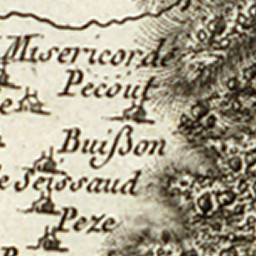 Misericorde
Pecout
e
Buißon
e Seissaud
Peze